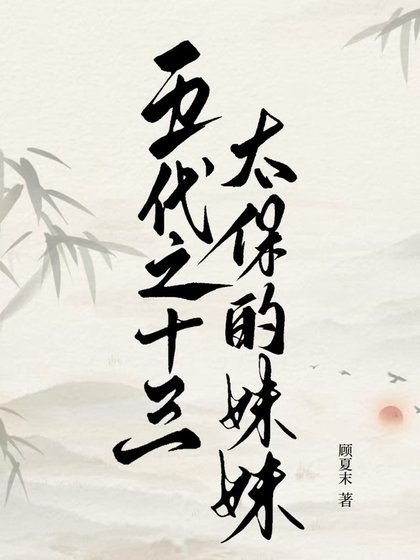 五代之十三
太保的妹妹
顾夏末 著